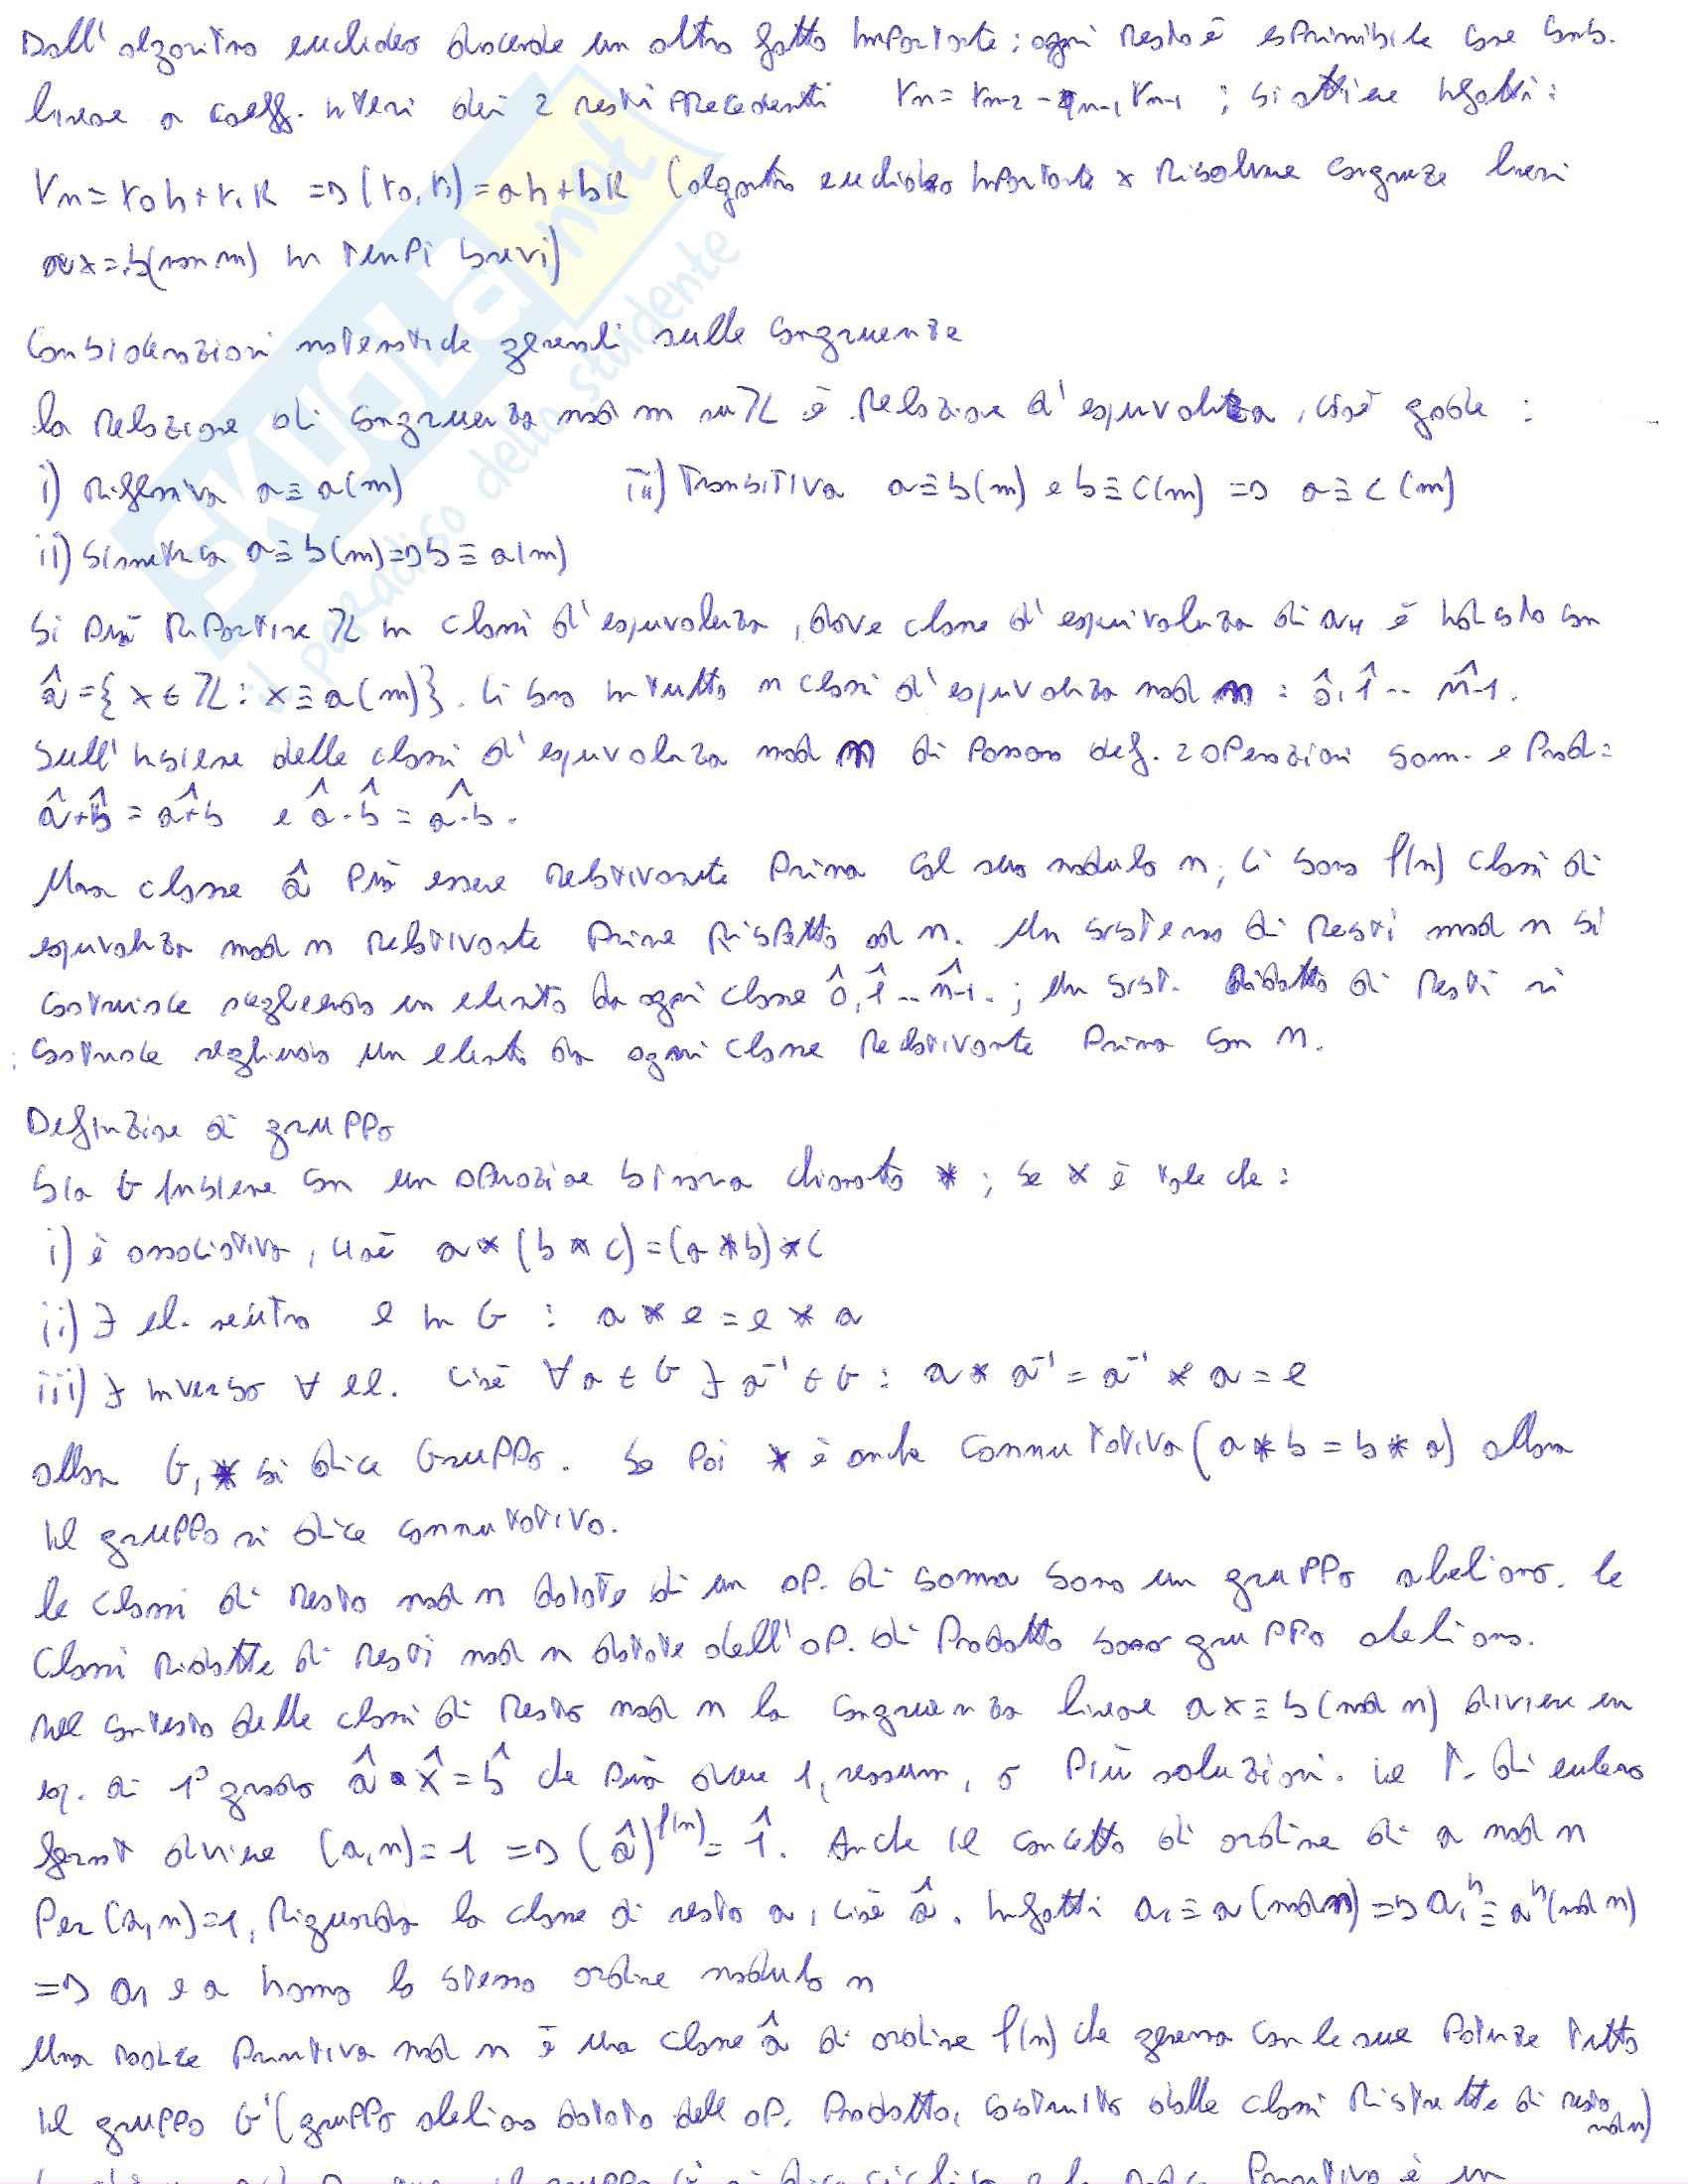 Dall'algoritmo euclideo discende un altro fatto importante: ogni resto è esprimibile come comb.
lineare a coeff. interi dei 2 resti precedenti rn = rn-2 - qn-1 rn-1 ; si ottiene infatti:
rn = r0h + r1k => (r0, r1) = ah + bk (algoritmo euclideo importante x risolvere congruenze lineari
ax = b (mod m) in tempi brevi)
Considerazioni matematiche generali sulle congruenze
la relazione di congruenza mod m su ℤ è relazione d'equivalenza, cioè gode :
i) riflessiva a ≡ a (m)
iii) transitiva a ≡ b (m) e b ≡ c (m) => a ≡ c (m)
ii) simmetrica a ≡ b (m) => b ≡ a (m)
Si può ripartire ℤ in classi d'equivalenza, dove classe d'equivalenza di a è indicata con
â = { x ∈ ℤ : x ≡ a (m) }. Ci sono in tutto n classi d'equivalenza mod n : 0̂, 1̂ -- n̂-1.
Sull'insieme delle classi d'equivalenza mod n si possono def. 2 operazioni som. e prod:
â + b̂ = a+̂b e â · b̂ = a·̂b.
Una classe â può essere relativamente prima col suo modulo n; ci sono φ(n) classi di
equivalenza mod n relativamente prime rispetto ad n. Un sistema di resti mod n si
costruisce scegliendo un elemento da ogni classe 0̂, 1̂ -- n̂-1. ; un sist. ridotto di resti si
costruisce scegliendo un elemento da ogni classe relativamente prima con n.
Definizione di gruppo
Sia G insieme con un operazione binaria chiamata * ; se * è tale che :
i) è associativa, cioè a * (b * c) = (a * b) * c
ii) ∃ el. neutro e in G : a * e = e * a
iii) ∃ inverso ∀ el. cioè ∀ a ∈ G ∃ a⁻¹ ∈ G : a * a⁻¹ = a⁻¹ * a = e
allora G, * si dice Gruppo. Se poi * è anche commutativa (a * b = b * a) allora
il gruppo si dice commutativo.
le classi di resto mod n dotate di un op. di somma sono un gruppo abeliano. le
classi ridotte di resti mod n dotate dell'op. di prodotto sono gruppo abeliano.
nel contesto delle classi di resto mod n la congruenza lineare ax ≡ b (mod n) diviene un
eq. di 1° grado â · x̂ = b̂ che può avere 1, nessuna, o più soluzioni. il t. di eulero
fermat diviene (a, n) = 1 => (â)^φ(n) = 1̂. Anche il concetto di ordine di a mod n
per (a, n) = 1, riguarda la classe di resto a, cioè â. Infatti a₁ ≡ a (mod n) => a₁ʰ ≡ aʰ (mod n)
=> a₁ e a hanno lo stesso ordine modulo n
Una radice primitiva mod n è una classe â di ordine φ(n) che genera con le sue potenze tutto
il gruppo G' (gruppo abeliano dotato dell op. prodotto, costruito dalle classi ristrette di resto mod n)